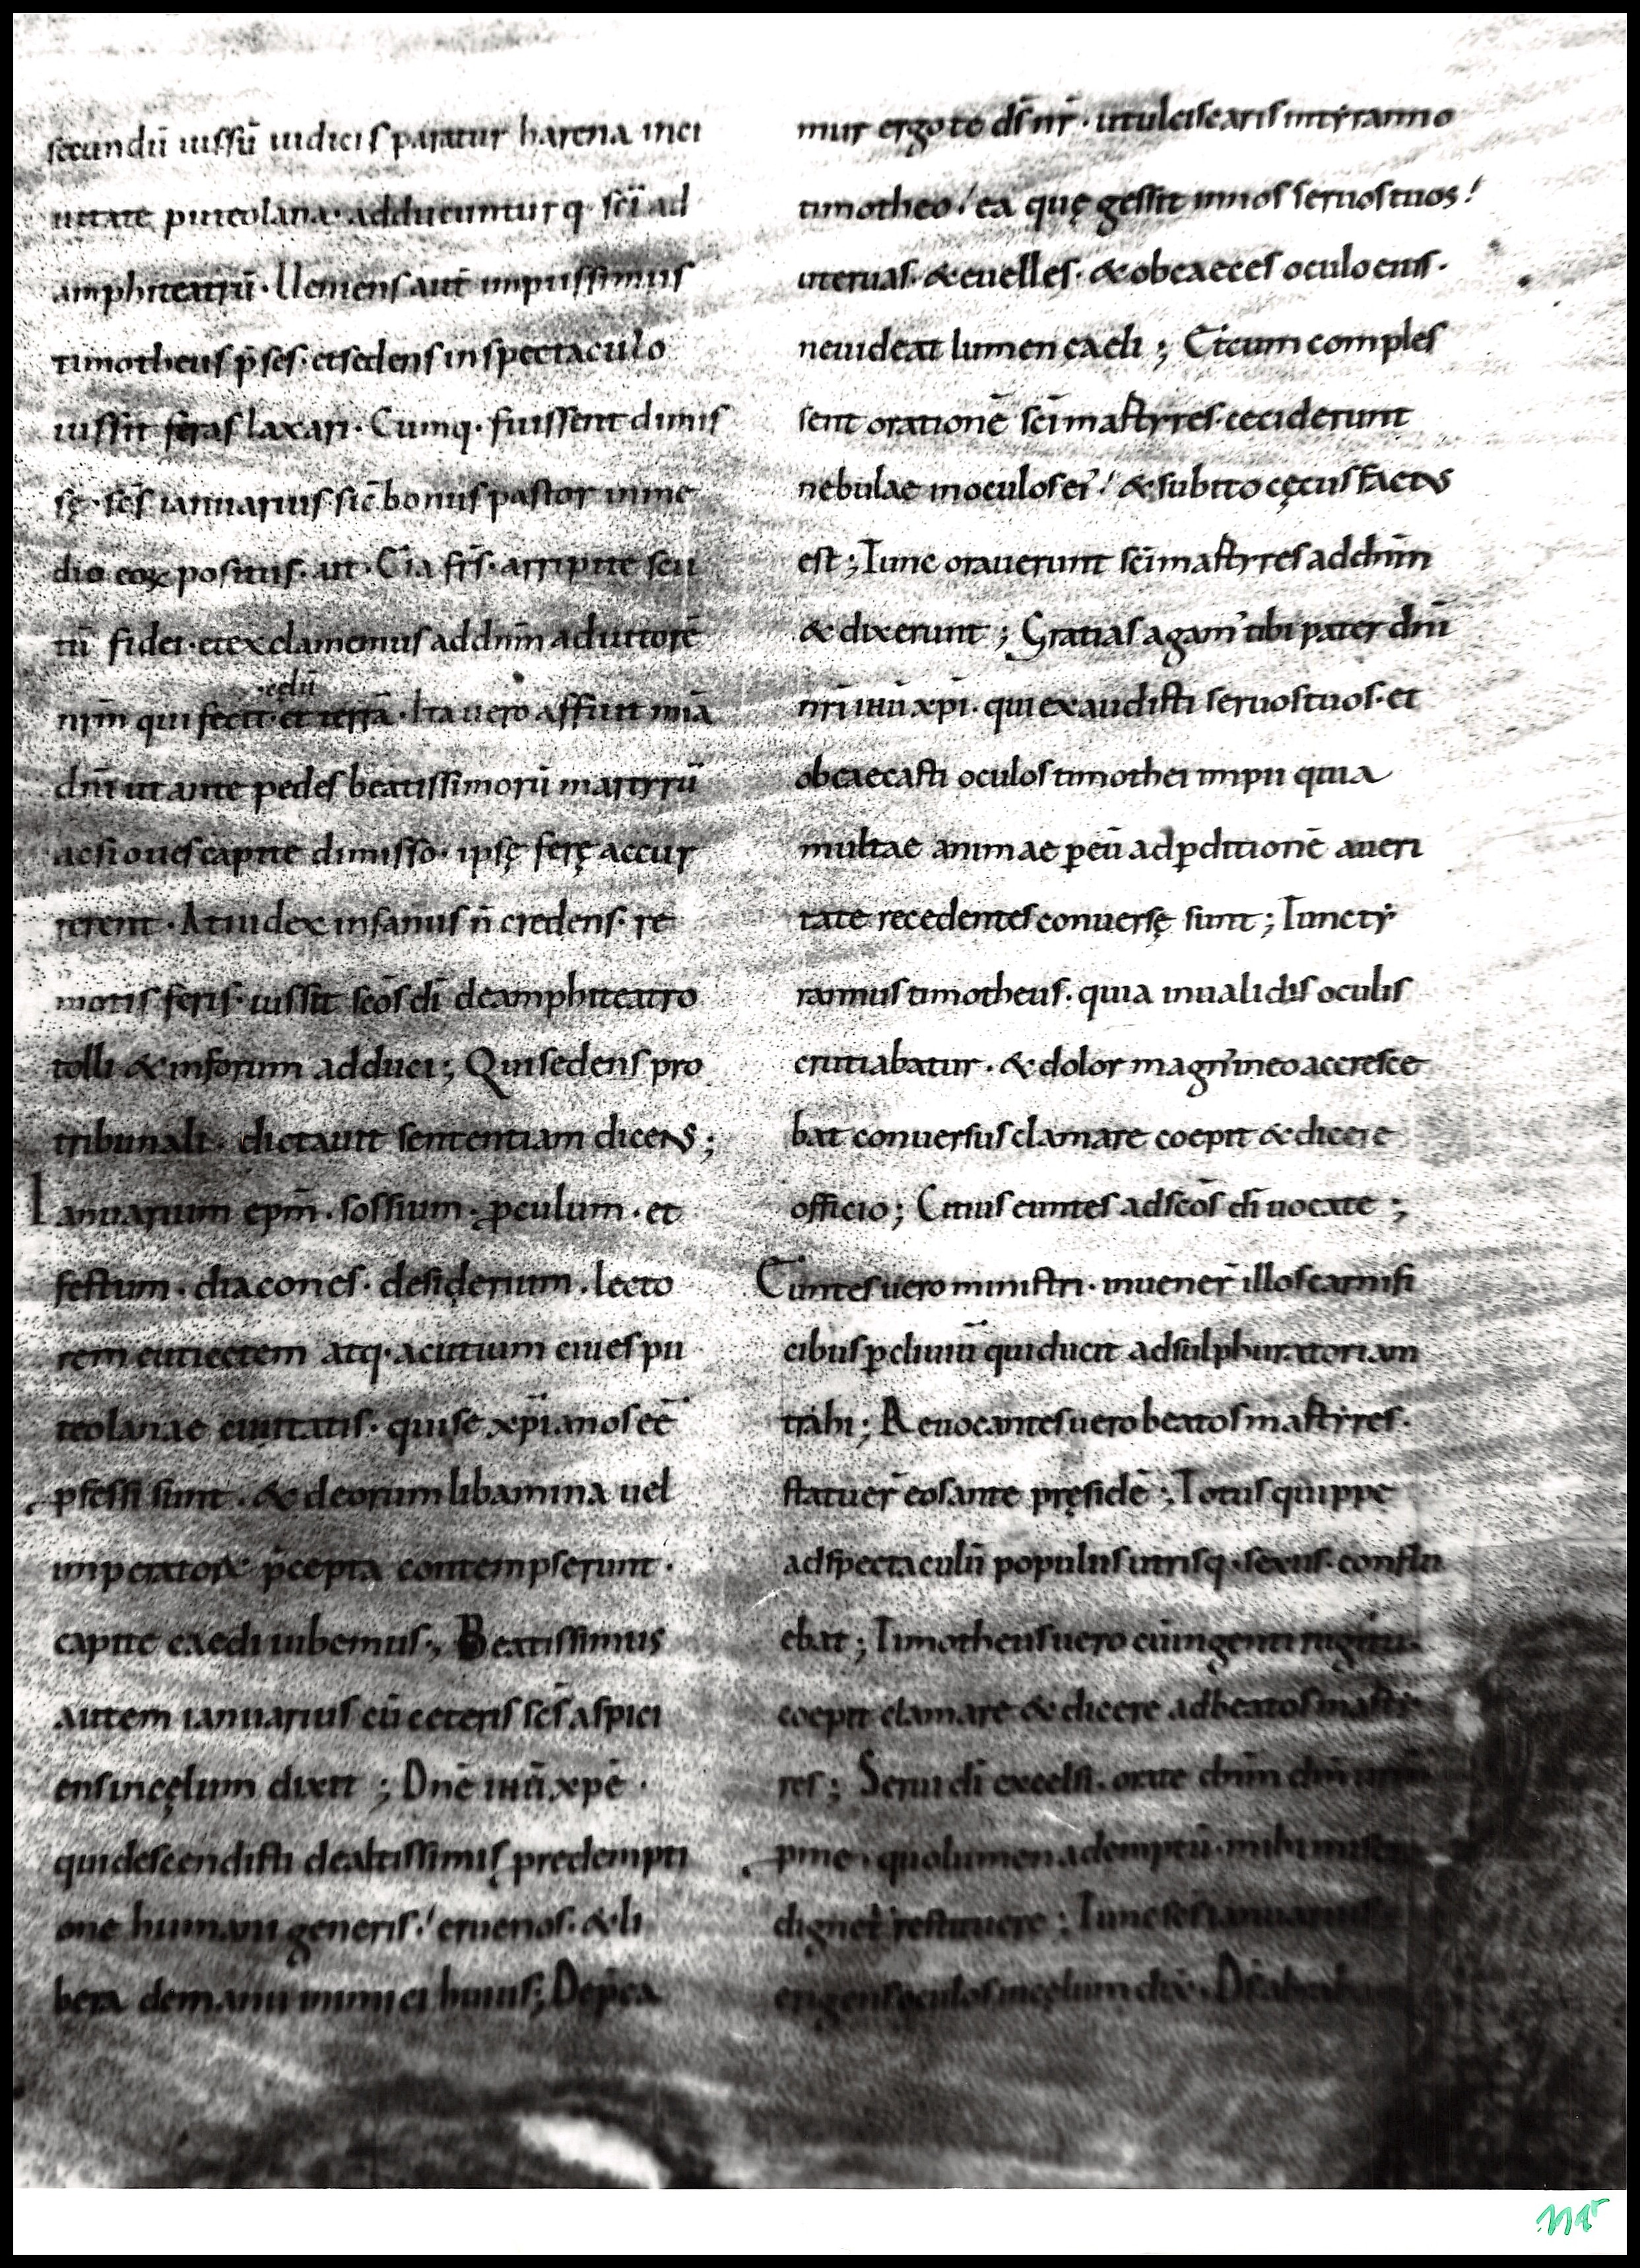 secundū iussū iudicis paratur harena inci
uitate puteolana· adducuntur q· sc̄i ad
amphiteatrū· Ueniens aut̄ impiissimus
timotheus p̄ses· et sedens in spectaculo
iussit feras laxari· Cumq· fuissent dimis
sę· sc̄s ianuarius sic̄ bonus pastor in me
dio eoꝝ positus· ait· Eia fr̄s· arripite scu
tū fidei· et exclamemus ad dn̄m adiutorē
·celū
nr̄m qui fecit· et terrā· Ita uero affuit mīa
dn̄i ut ante pedes beatissimorū martyrū
ac si oues capite dimisso· ipsę ferę accur
rerent· At iudex insanus n̄ credens· re
motis feris· iussit sc̄os dī de amphiteatro
tolli & in forum adduci; Qui sedens pro
tribunali· dictauit sententiam dicens;
Ianuarium ep̄m· sossium· ꝓculum· et
festum· diacones· desiderium· lecto
rem eutiectem atq· acutium ciues pu
teolanae ciuitatis· qui se xp̄ianos eē
ꝓfessi sunt· & deorum libamina uel
imperatoꝝ p̄cepta contempserunt·
capite caedi iubemus; Beatissimus
autem ianuarius cū ceteris sc̄is aspici
ens in cęlum dixit; Dn̄e iħū xp̄e·
qui descendisti de altissimis pre dempti
one humani generis! erue nos· & li
bera de manu inimici huius; Dep̄ca
mur ergo te dn̄s nr̄· ut ulciscaris in tẏranno
timotheo! ea quę gessit in nos seruos tuos!
ut eruas· & euelles· & obcaeces oculo eius·
ne uideat lumen caeli; Et cum comples
sent orationē sc̄i martyres· ceciderunt
nebulae in oculos ei᾽! & subito cęcus factus
est; Tunc orauerunt sc̄i martyres ad dn̄m
& dixerunt; Gratias agam᾽ tibi pater dn̄i
nr̄i iħū xp̄i· qui exaudisti seruos tuos· et
obcaecasti oculos timothei impii quia
multae animae ꝑ eū ad ꝑditionē a ueri
tate recedentes conuersę sunt; Tunc tẏ
rannus timotheus· quia inualidis oculis
crutiabatur· & dolor magn᾽ in eo accresce
bat conuersus clamare coepit & dicere
officio; Citius euntes ad sc̄os dī uocate;
Euntes uero ministri· inuener̄ illos carnifi
cibus ꝑ cliuiū qui ducit ad sulphuratoriam
trahi; Reuocantes uero beatos martẏres·
statuer̄ eos ante pręsidē; Totus quippe
ad spectaculū populus utrisq· sexus· conflu
ebat; Timotheus uero cū ingenti rugitu·
coepit clamare & dicere ad beatos martẏ
res; Serui dī excelsi· orate dn̄m dm̄
ꝓ me· quo lumen ademptū· mihi
dignet᾽ restituere; Tunc sc̄s ianuarius
erigens oculos in cęlum dix̄· Ds̄